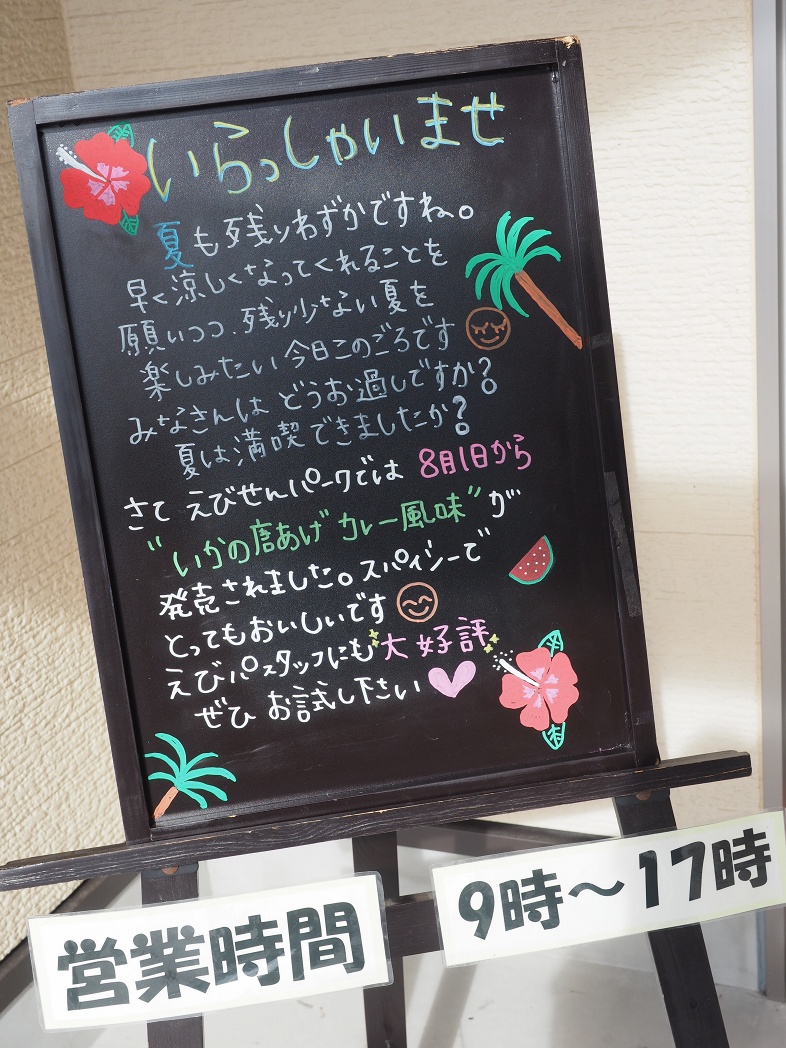 いらっしゃいませ
夏も残りわずかですね。
早く涼しくなってくれることを
願いつつ、残り少ない夏を
楽しみたい今日このごろです
みなさんは どうお過しですか?
夏は満喫できましたか?
さて えびせんパークでは 8月1日から
"いかの唐あげ カレー風味"が
発売されました。スパイシーで
とってもおいしいです
えびパスタッフにも大好評
ぜひ お試し下さい
営業時間
9時〜17時